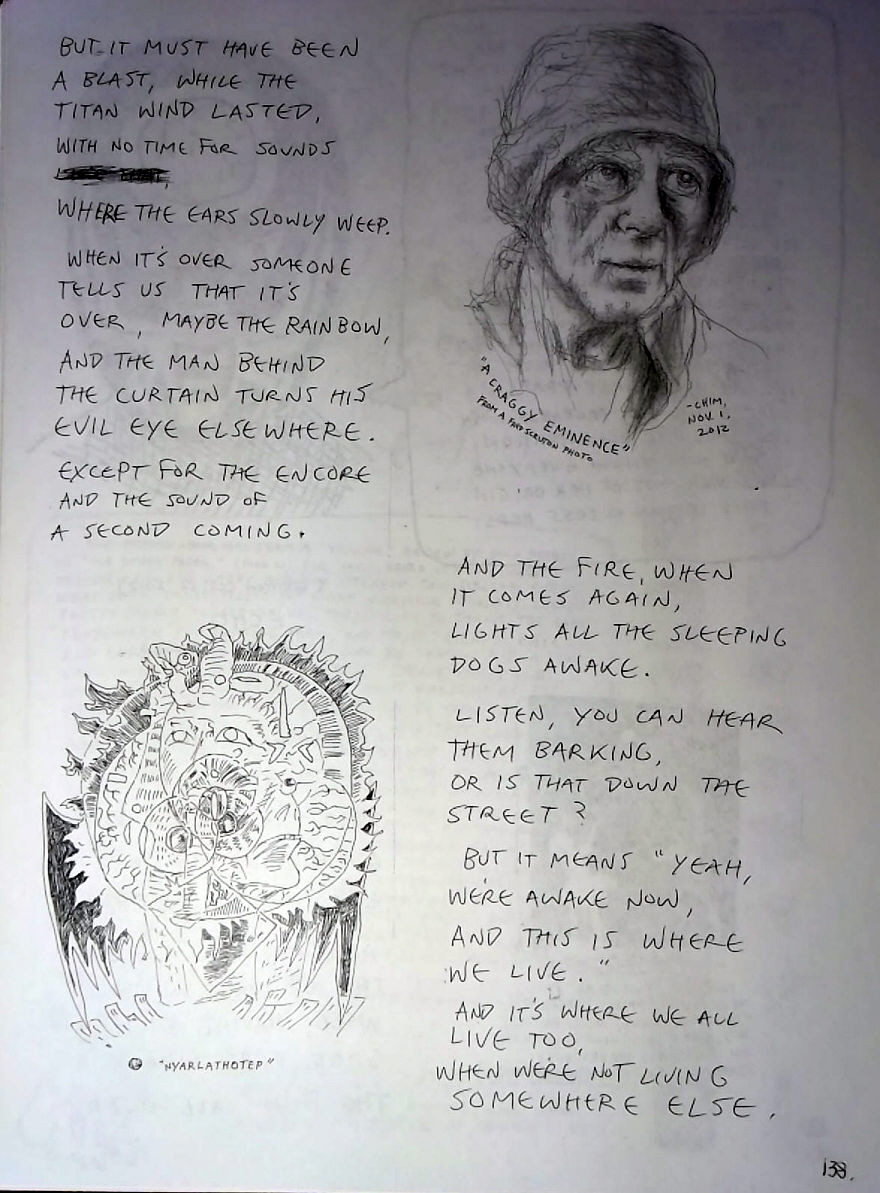 BUT IT MUST HAVE BEEN
A BLAST, WHILE THE
TITAN WIND LASTED,
WITH NO TIME FOR SOUNDS
WHERE THE EARS SLOWLY WEEP.
WHEN IT'S OVER SOMEONE
TELLS US THAT IT'S
OVER, MAYBE THE RAINBOW,
AND THE MAN BEHIND
THE CURTAIN TURNS HIS
EVIL EYE ELSEWHERE.
EXCEPT FOR THE ENCORE
AND THE SOUND OF
A SECOND COMING.
"A CRAGGY EMINENCE"
FROM A FRED SCRUTON PHOTO
-CHIM,
NOV. 1,
2012
"NYARLATHOTEP"
AND THE FIRE, WHEN
IT COMES AGAIN,
LIGHTS ALL THE SLEEPING
DOGS AWAKE.
LISTEN, YOU CAN HEAR
THEM BARKING,
OR IS THAT DOWN THE
STREET?
BUT IT MEANS "YEAH,
WE'RE AWAKE NOW,
AND THIS IS WHERE
WE LIVE."
AND IT'S WHERE WE ALL
LIVE TOO,
WHEN WE'RE NOT LIVING
SOMEWHERE ELSE.
138.